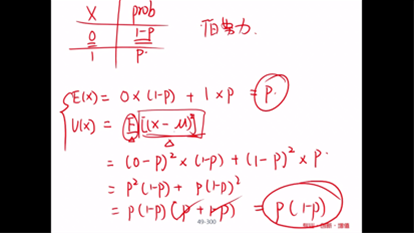 X prob
0 1-p
1 p.
E(x) = 0×(1-p) + 1×p = p.
V(x) = E[(x-μ)²]
= (0-p)²×(1-p) + (1-p)²×p
= p²(1-p) + p(1-p)²
= p(1-p)(p+1-p) = p(1-p)
49-300